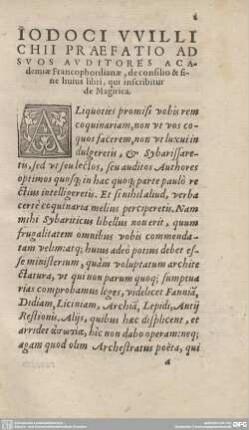 IODOCI VVILLI
CHII PRAEFATIO AD
SVOS AVDITORES ACA-
demiæ Francophordianæ, de consilio & fi
ne huius libri, qui inscribitur
de Magirica.
ALiquoties promisi vobis rem
coquinariam, non vt vos co-
quos facerem, non vt luxui in
dulgeretis, & Sybarissare-
tis, sed vt seu lectos, seu auditos Authores
optimos quosq; in hac quoq; parte paulò re
ctius intelligeretis. Et si nihil aliud, verba
certè coquinaria melius perciperetis. Nam
mihi Sybariticus libellus nouerit, quum
frugalitatem omnibus vobis commenda-
tam velim: atq; huius adeò potius debet es-
se ministerium, quàm voluptatum archite
ctatura, vt qui non parum quoq; sumptua
rias comprobamus leges, videlicet Fanniã,
Didiam, Liciniam, Archiã, Lepidi, Antij
Restionis. Alijs, quibus hæc displicent, et
arridet ἀσωτία, hîc non dabo operam: neq;
agam quod olim Archestratus poëta, qui
a